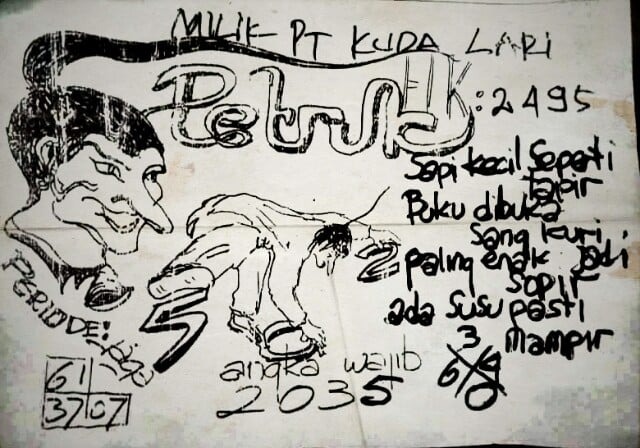 MILIK PT KUDA LARI
Petruk
HK: 2495
Sapi kecil seperti
tapir
Buku dibuka
sang kuri
paling enak jadi
sopir
ada susu pasti
mampir
PERIODE:
5
2
angka wajib
2035
61
37 07
3
6 9
0